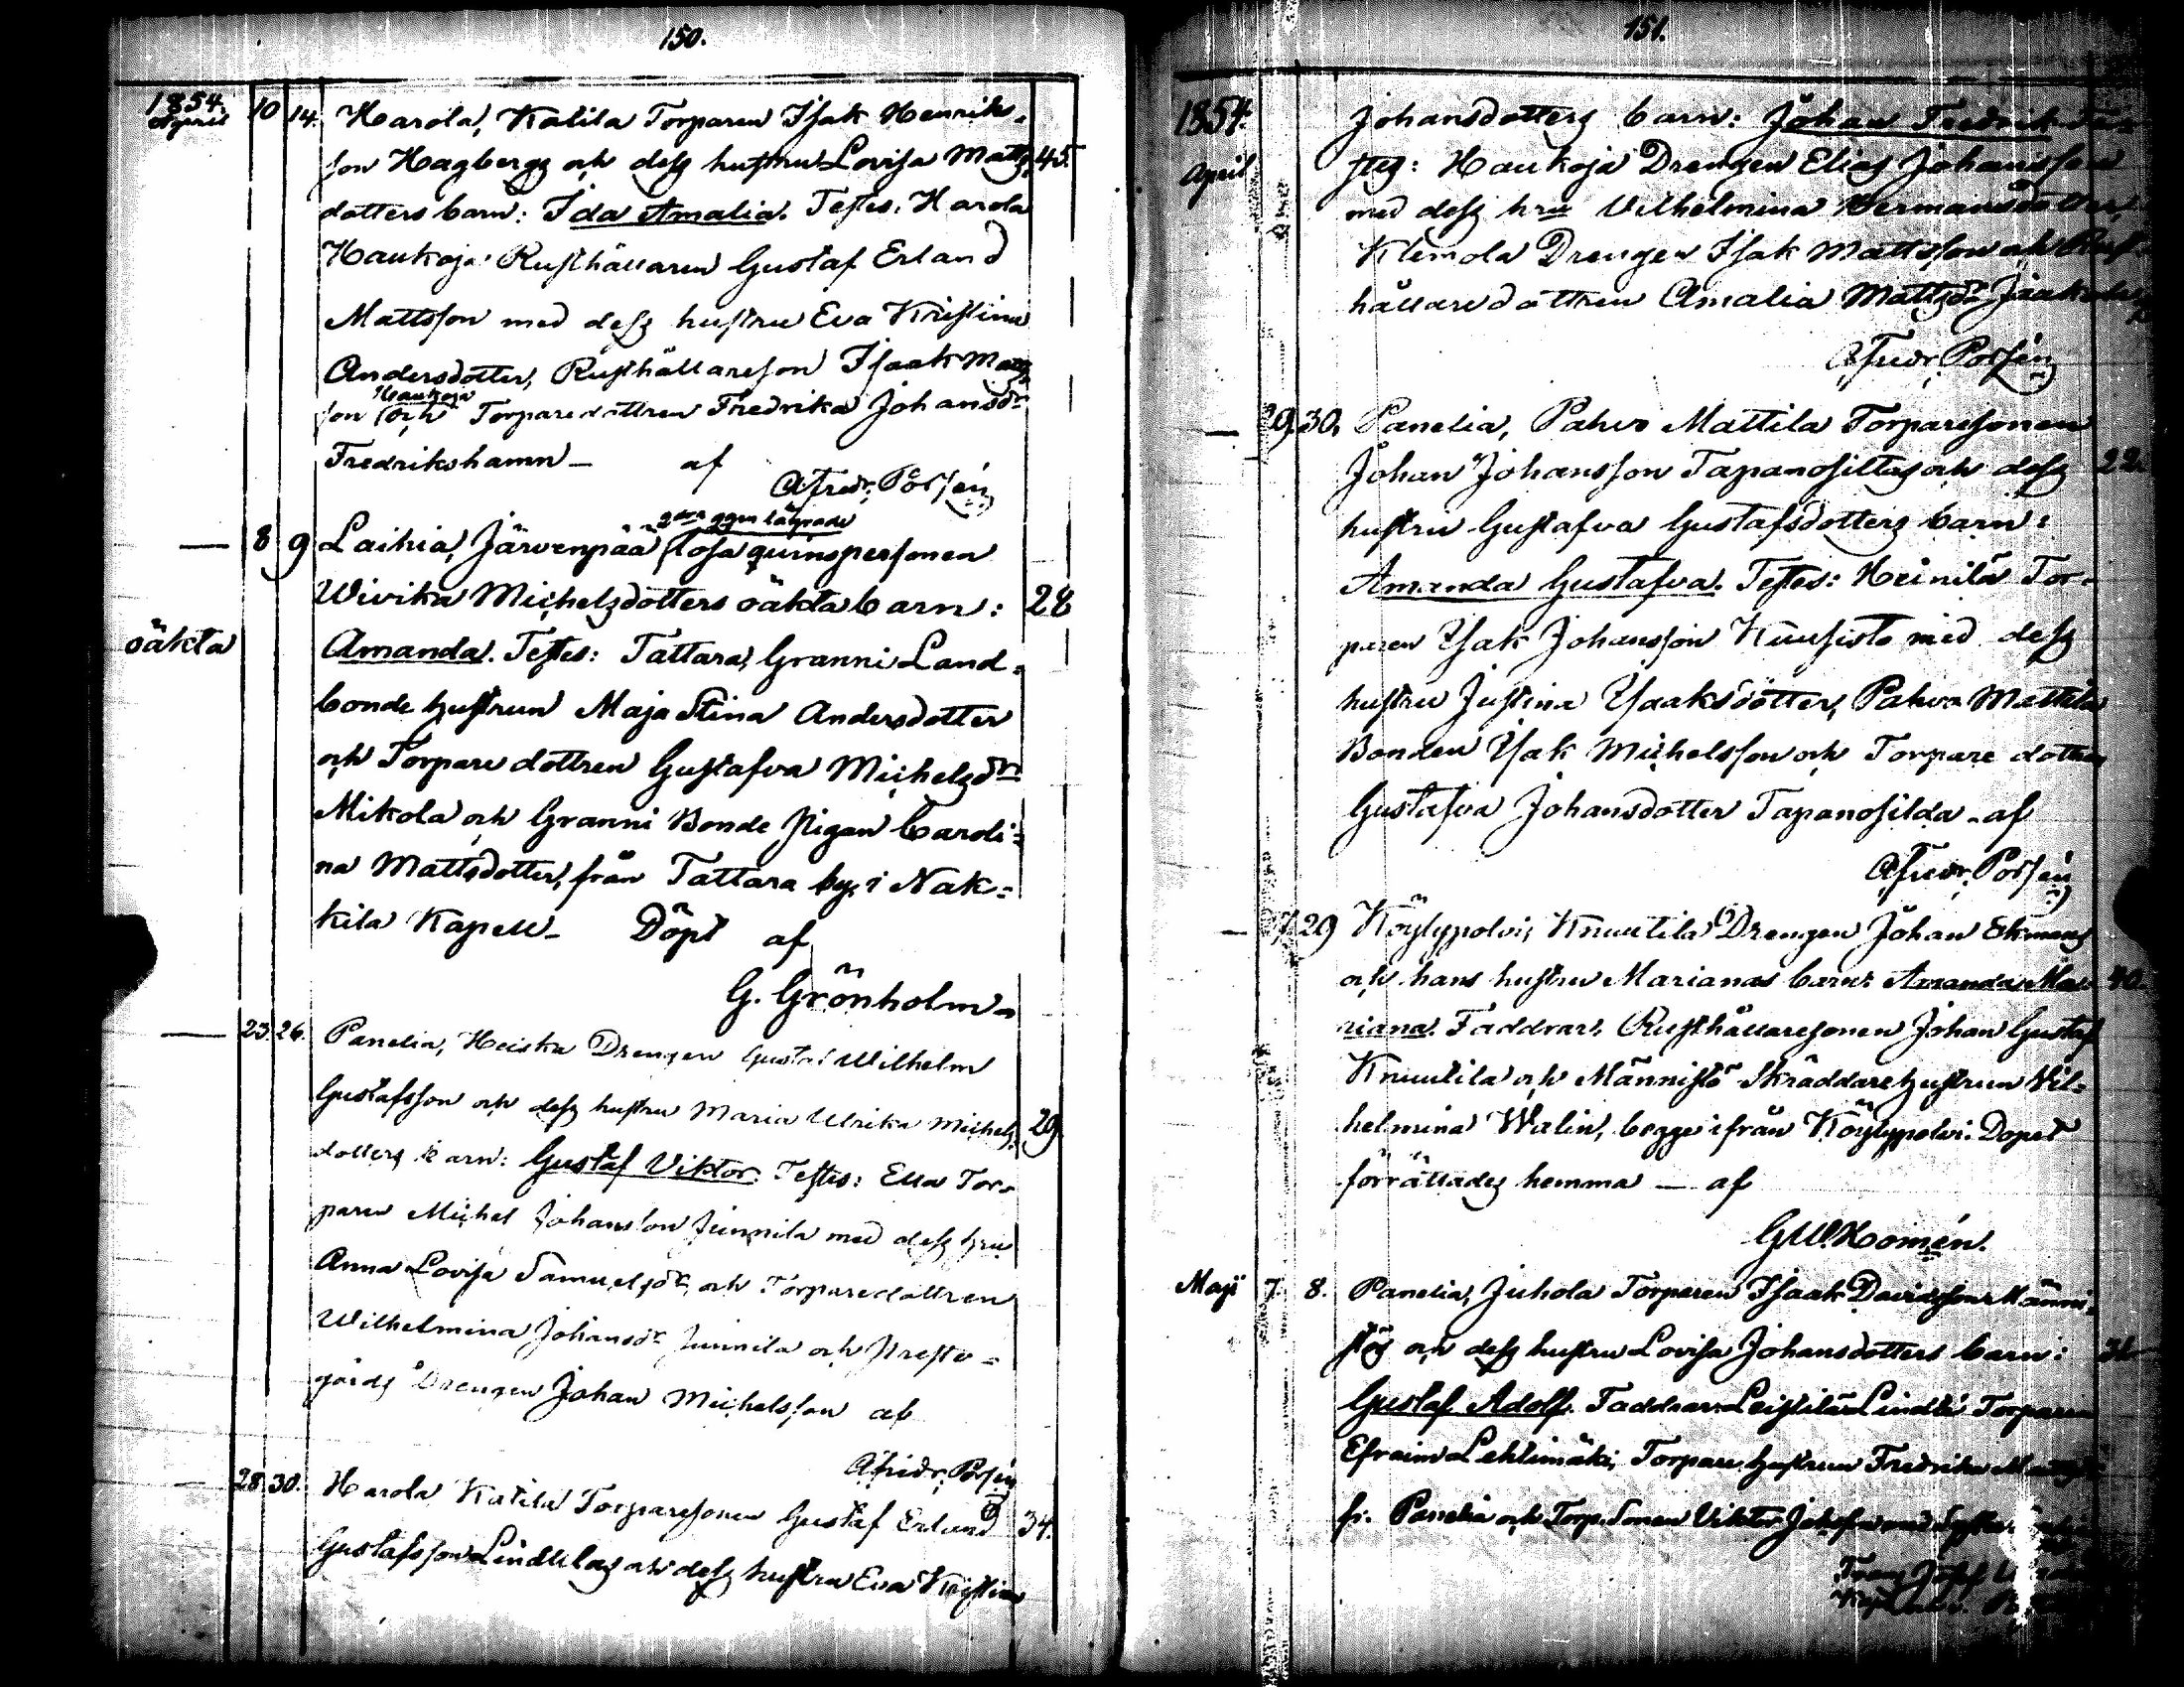 150.
1854. April 10 14. Harola, Katila Torparen Isak Henriks-
son Hagbergs och dess hustru Lovisa Matts 45.
dotters barn: Ida Amalia. Testes: Harola
Haukoja Rusthållaren Gustaf Erland
Mattsson med dess hustru Eva Kristina
Andersdotter, Rusthållareson Isaak Matts
son Haukoja och Torparedottren Fredrika Johansdr
Fredrikshamn – af
A Fredr. Polsén
— 8 9 Laihia, Järvenpää 2dra ggn lägrade lösa qvinspersonen
Wivika Michelsdotters oäkta barn: 28
oäkta Amanda. Testes: Tattara, Granni Land-
bonde hustrun Maja Stina Andersdotter
och Torpare dottren Gustafva Michelsdr
Mikola och Granni Bonde pigan Caroli-
na Mattsdotter, från Tattara by i Nak-
kila Kapell – Döpt af
G. Grönholm
— 23. 26. Panelia, Heiska Drengen Gustaf Wilhelm
Gustafsson och dess hustru Maria Ulrika Michels 29
dotters barn: Gustaf Viktor. Testes: Ella Tor-
paren Michel Johansson Junnila med dess hru
Anna Lovisa Samuelsdr och Torparedottren
Wilhelmina Johansdr Junnila och Preste-
gårds Drengen Johan Michelsson af
A Fredr. Polsén
— 28. 30. Harola Katila Torparesonen Gustaf Erland 34.
Gustafsson och dess hustru Eva Kristina
151.
1854. Johansdotters barn: Johan Fredrik
April Haukoja Drengen Elias Johansson
med dess hru Vilhelmina Hermansdotter
Klemola Drengen Isak Mattsson och Rust
hållaredottren Amalia Mattsdr
A Fredr. Polsén
— 29. 30. Panelia, Pahvo Mattila Torparesonen
Johan Johansson och dess 22.
hustru Gustafva Gustafsdotters barn:
Amanda Gustafva. Testes: Heinilä Tor-
paren Isak Johansson Kuusisto med dess
hustru Justina Isaksdotter, Pahvo Mattila
Bonden Isak Michelsson och Torpare dottren
Gustafva Johansdotter – af
A Fredr. Polsén
— 27 29 Köylypolvi, Knuutila Drengen Johan Ekmans
och hans hustru Marianas barn: Amanda Ma- 40.
riana. Faddrar: Rusthållaresonen Johan Gustaf
Knuutila och Männistö Skräddarehustrun Vil-
helmina Walin, begge ifrån Köylypolvi. Dopet
förrättades hemma — af
G W. Homén.
Maji 7. 8. Panelia, Juhola Torparen Isaak Davidsson Männi-
stös och dess hustru Lovisa Johansdotters barn:
Gustaf Adolf. Faddrar: Leistilä Torparen
Efraim Lehtimäki, Torpare hustrun Fredrika
fr. Panelia och Torp. Sonen Viktor